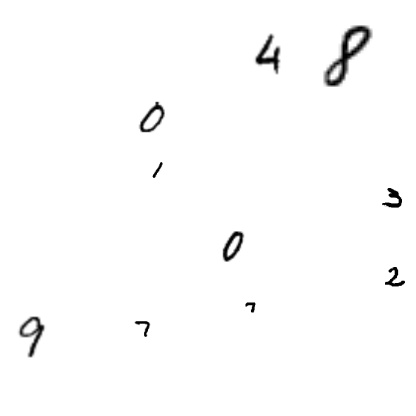 4 8
0
1
3
0
2
7
9 7